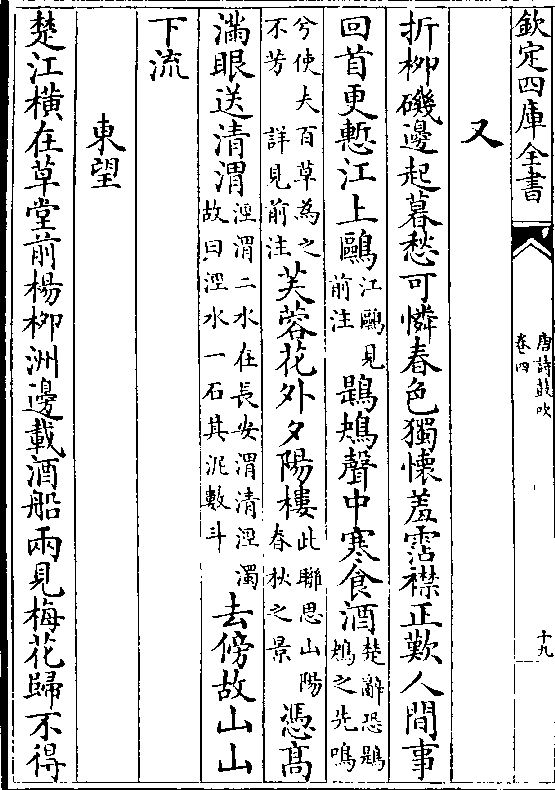 欽定四庫全書
唐詩鼓吹
卷四
十九
又
折柳磯邊起暮愁可憐春色獨懷羞霑襟正歎人間事
回首更慙江上鷗江鷗見前注鶗鴂聲中寒食酒楚辭恐鶗鴂之先鳴
兮使夫百草為之不芳詳見前注芙蓉花外夕陽樓此聯思山陽春秋之景憑髙
滿眼送清渭涇渭二水在長安渭清涇濁故曰涇水一石其泥數斗去傍故山山
下流
東望
楚江橫在草堂前楊柳洲邊載酒船兩見梅花歸不得